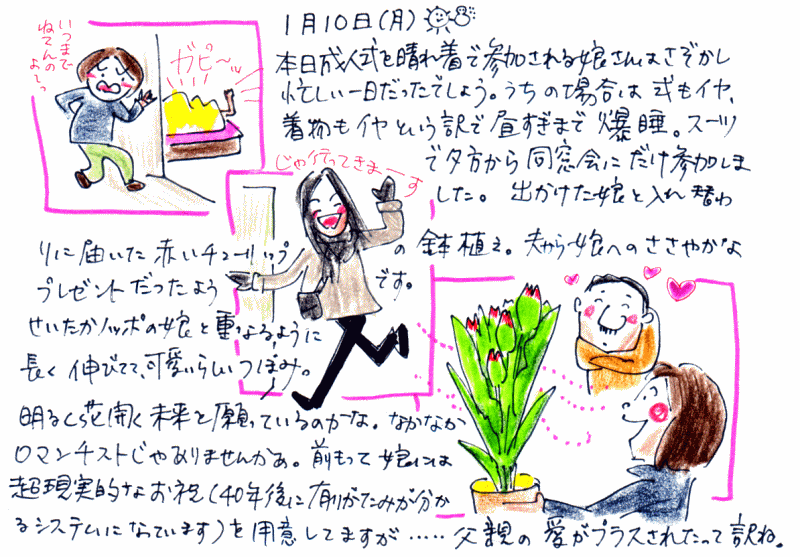 1月10日(月)
いつまで
ねてんの
よ〜っ
ガピ〜ッ
本日成人式を晴れ着で参加される娘さんはさぞかし
忙しい一日だったでしょう。うちの場合は式もイヤ、
着物もイヤという訳で昼すぎまで爆睡。スーツ
で夕方から同窓会にだけ参加しま
した。出かけた娘と入れ替わ
じゃ行ってきまーす
りに届いた赤いチューリップの鉢植え。夫から娘へのささやかな
プレゼントだったようです。
せいたかノッポの娘と重なるように
長く伸びてて、可愛いらしいつぼみ。
明るく花開く未来を願っているのかな。なかなか
ロマンチストじゃありませんかぁ。前もって娘には
超現実的なお祝(40年後に有りがたみが分か
るシステムになっています)を用意してますが……父親の愛がプラスされたって訳ね。